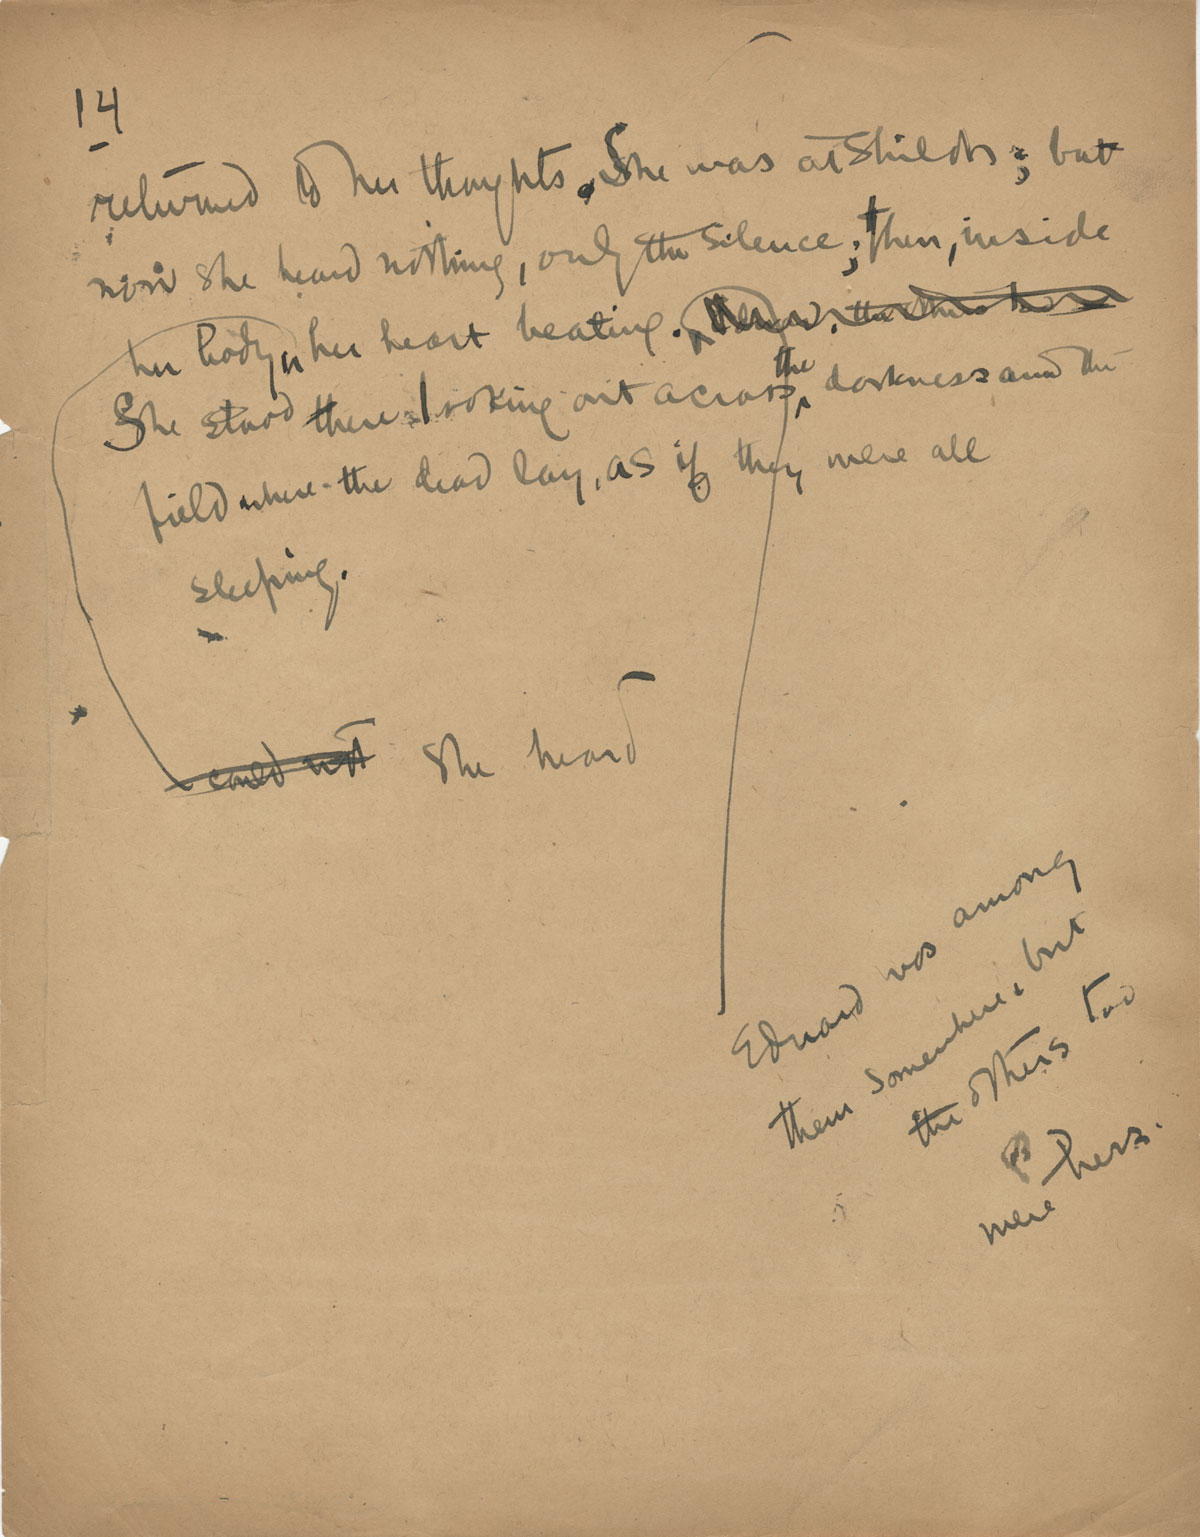 14
returned to her thoughts. She was at Shiloh; but
now she heard nothing, only the silence; then, inside
her body, her heart beating.
She stood there looking out across the darkness and the
field where the dead lay, as if they were all
sleeping.
could not she heard
Edward was among
them somewhere, but
the others too
were hers.